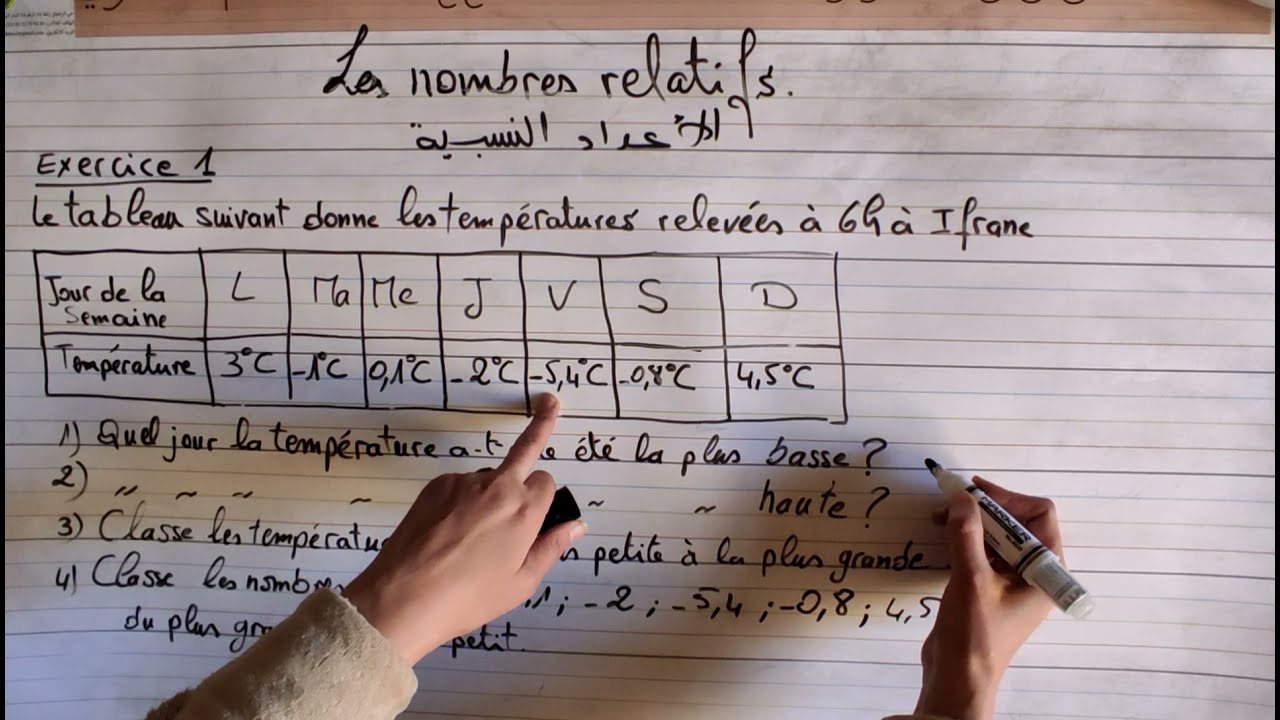 Les nombres relatifs.
الأعداد النسبية
Exercice 1
Le tableau suivant donne les températures relevées à 6h à Ifrane
Jour de la Semaine L Ma Me J V S D
Température 3°C -1°C 0,1°C -2°C -5,4°C -0,8°C 4,5°C
1) Quel jour la température a-t été la plus basse ?
2) " ~ ~ ~ ~ ~ haute ?
3) Classe les petite à la plus grande
4) Classe les nombres -2 ; -5,4 ; -0,8 ; 4,5
du plus petit.
MARKER